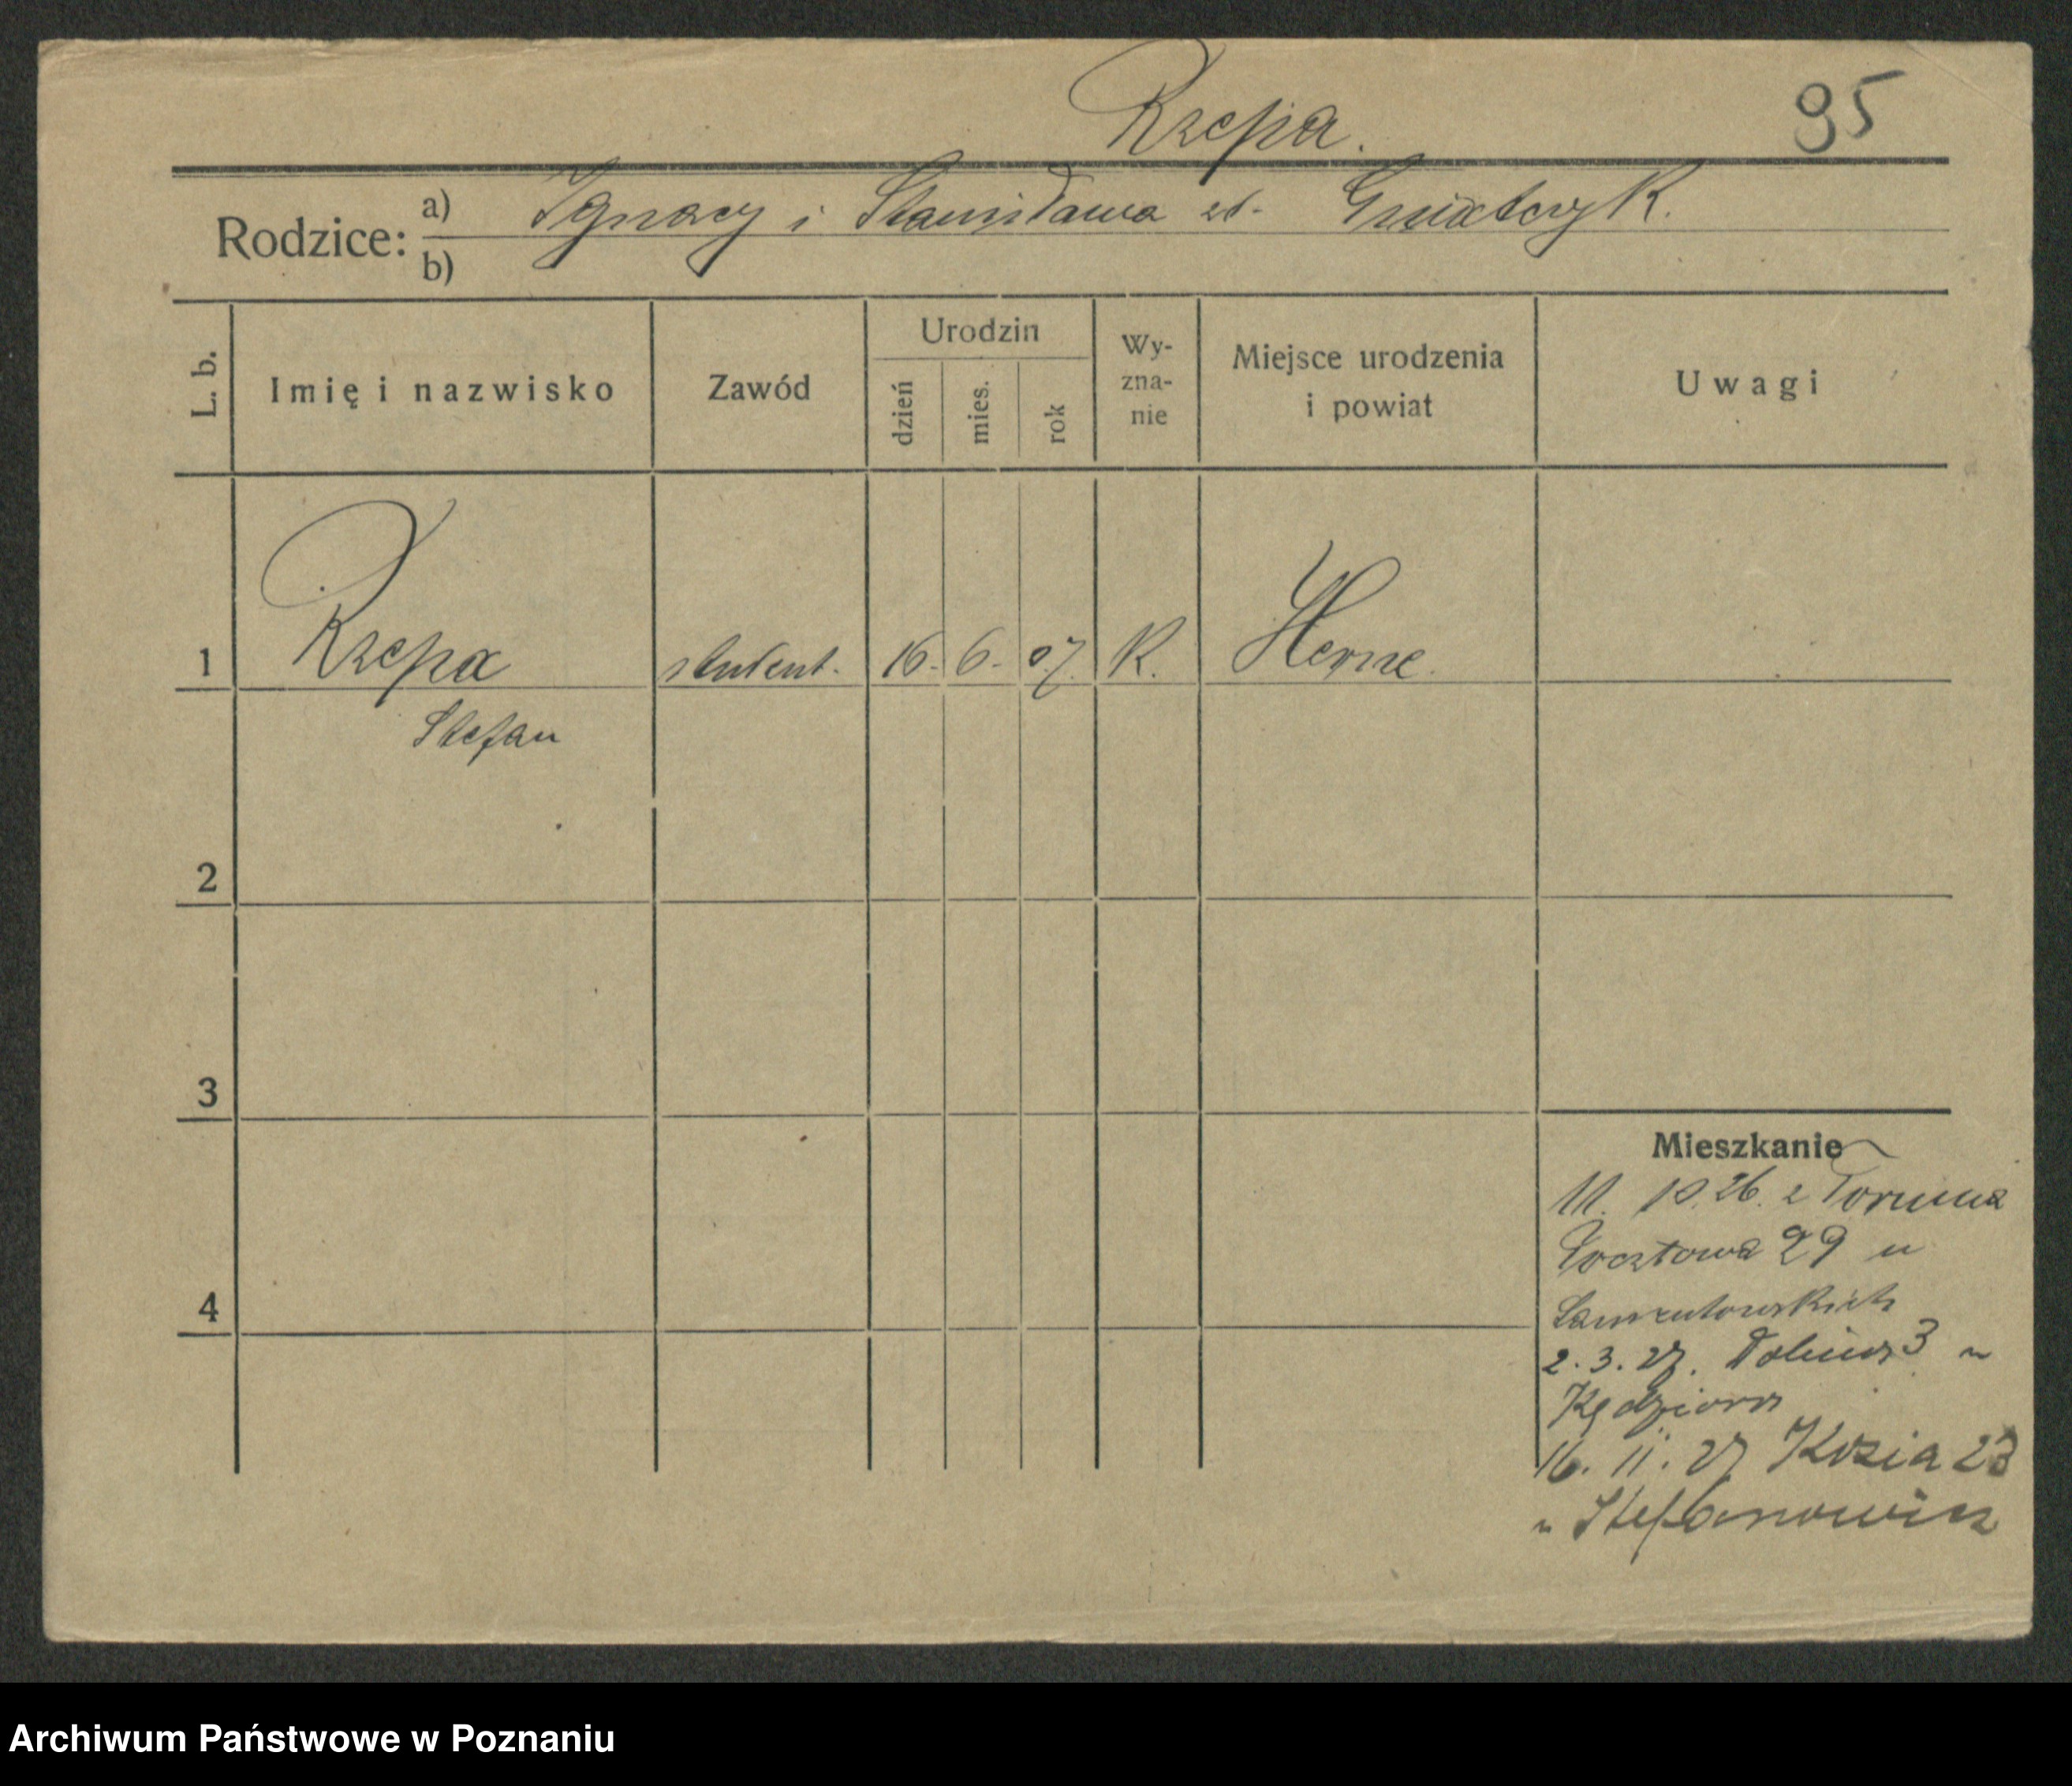 Rzepa.
95
Rodzice: a) Ignacy i Stanisława zd. Gniatczyk.
b)
L. b.
Imię i nazwisko
Zawód
Urodzin
dzień
mies.
rok
Wy-
zna-
nie
Miejsce urodzenia
i powiat
Uwagi
1 Rzepa student. 16. 6. 07. K. Herne.
Stefan
2
3
4
Mieszkanie
11. 10. 26. z Torunia
Pocztowa 29 u
2. 3. 27. 3 u
Kędziora
16. 11. 27 Kozia 23
u Stefanowicz
Archiwum Państwowe w Poznaniu